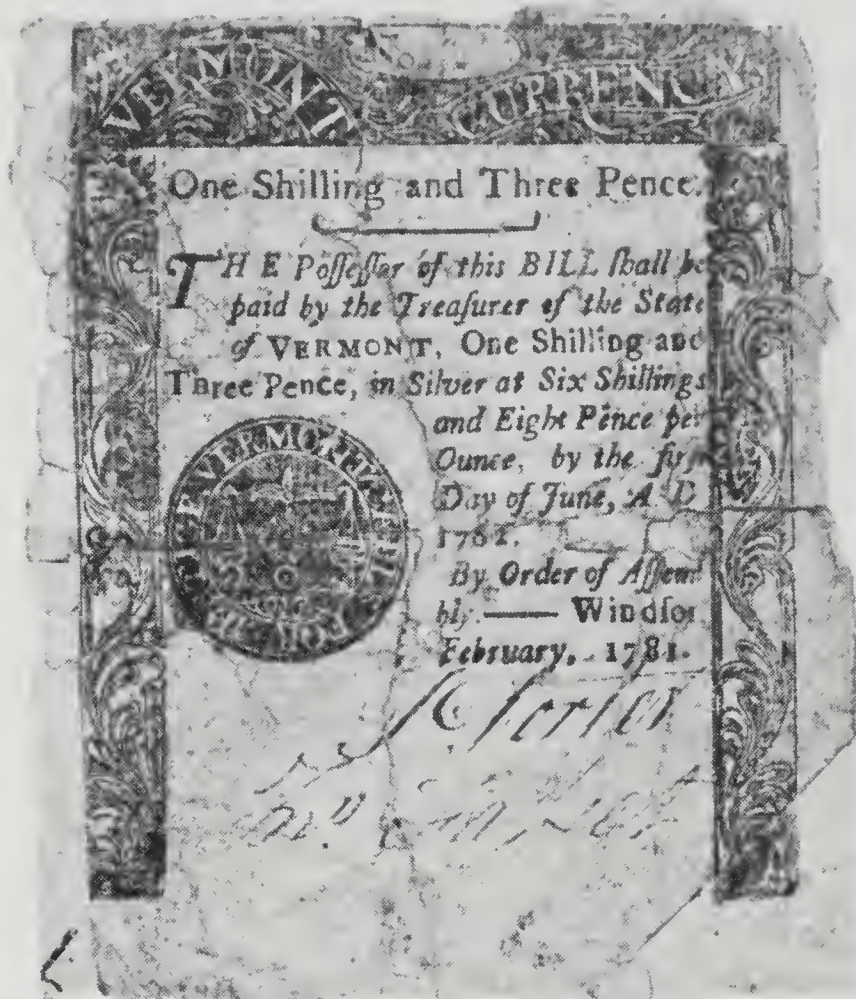 VERMONT CURRENCY
One Shilling and Three Pence.
THE Poſſeſſor of this BILL ſhall be
paid by the Treaſurer of the State
of VERMONT, One Shilling and
Three Pence, in Silver at Six Shillings
and Eight Pence per
Ounce, by the firſt
Day of June, A. D.
1782.
By Order of Aſſem
bly. —— Windſor
February, 1781.
VERMONT